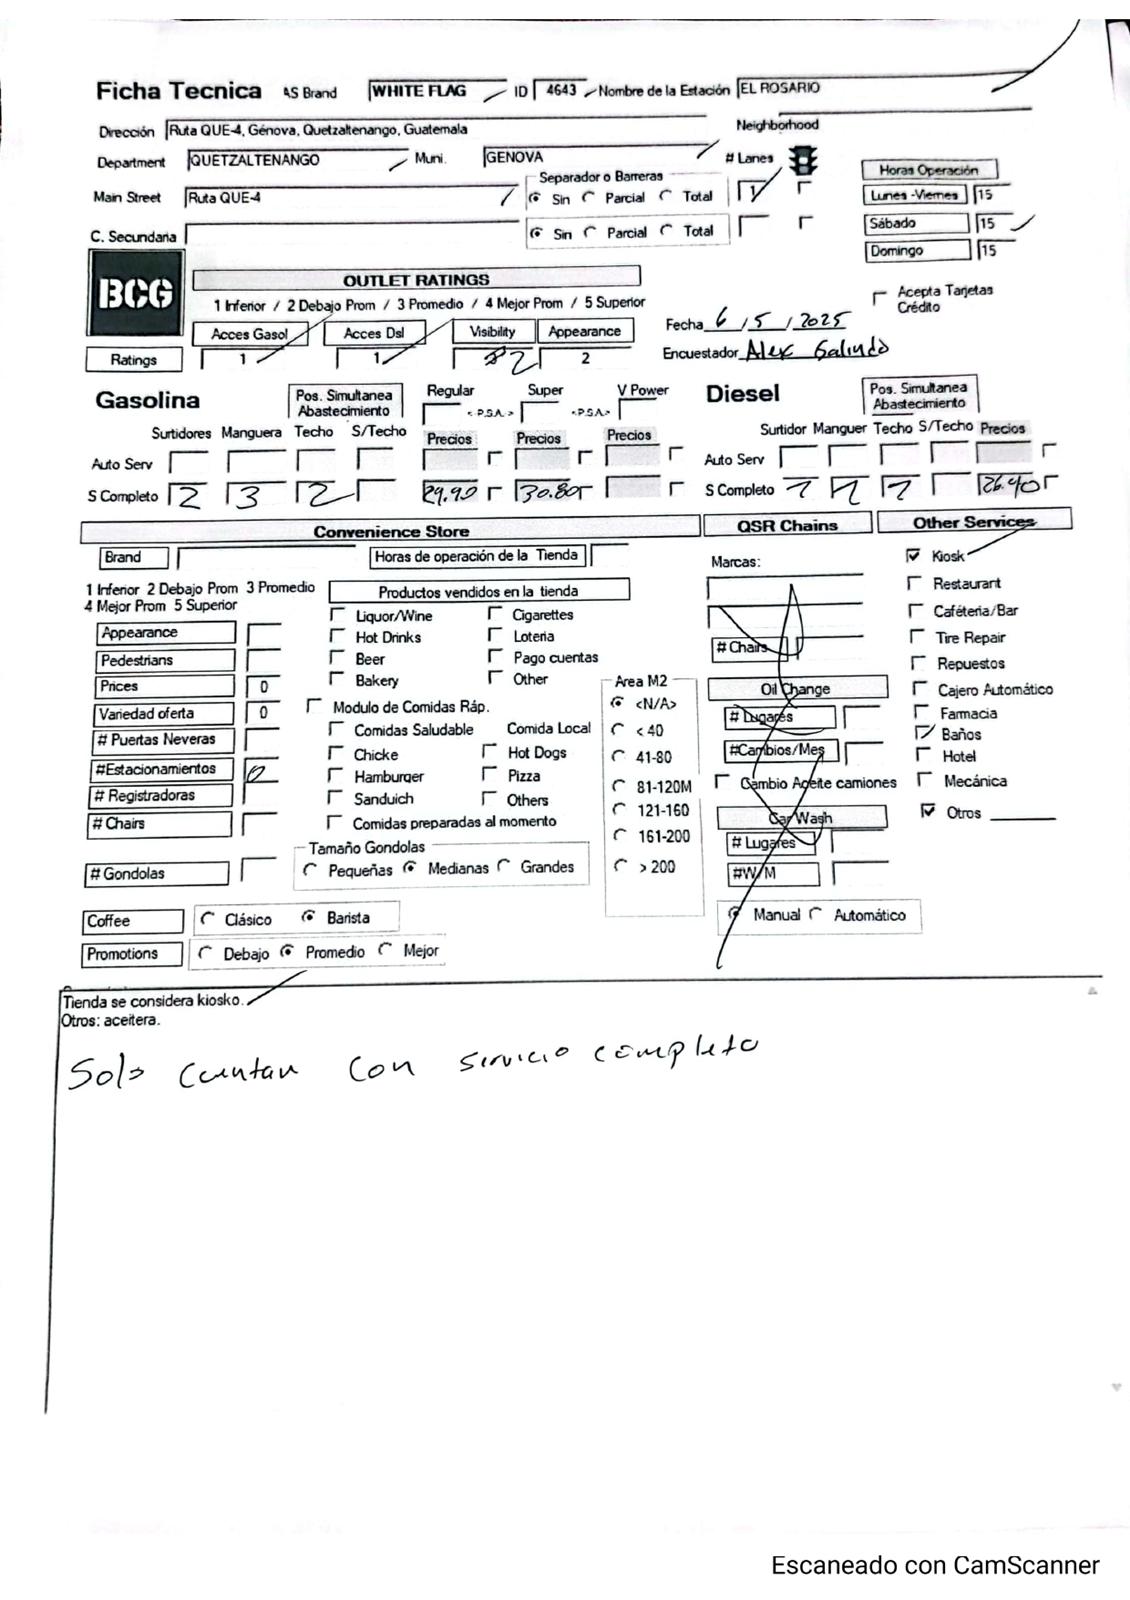 Ficha Tecnica AS Brand WHITE FLAG ID 4643 Nombre de la Estación EL ROSARIO
Dirección Ruta QUE-4, Génova, Quetzaltenango, Guatemala Neighborhood
Department QUETZALTENANGO Muni. GENOVA # Lanes
Horas Operación
Separador o Barreras
Main Street Ruta QUE-4 Sin Parcial Total 1 Lunes -Viernes 15
Sábado 15
C. Secundaria Sin Parcial Total
Domingo 15
BCG
OUTLET RATINGS
1 Inferior / 2 Debajo Prom / 3 Promedio / 4 Mejor Prom / 5 Superior
Acepta Tarjetas
Crédito
Fecha 6 / 5 / 2025
Acces Gasol Acces Dsl Visibility Appearance
Encuestador Alex Galindo
Ratings 1 1 2 2
Gasolina Pos. Simultanea Abastecimiento Regular <P.S.A.> Super <P.S.A.> V Power
Diesel Pos. Simultanea Abastecimiento
Surtidores Manguera Techo S/Techo Precios Precios Precios
Surtidor Manguer Techo S/Techo Precios
Auto Serv Auto Serv
S Completo 2 3 2 29.90 30.80 S Completo 1 1 1 26.40
Convenience Store QSR Chains Other Services
Brand Horas de operación de la Tienda
Marcas:
Kiosk
1 Inferior 2 Debajo Prom 3 Promedio
4 Mejor Prom 5 Superior
Productos vendidos en la tienda
Restaurant
Liquor/Wine Cigarettes
Caféteria/Bar
Appearance Hot Drinks Loteria
# Chairs
Tire Repair
Pedestrians Beer Pago cuentas
Repuestos
Prices 0 Bakery Other
Area M2
Oil Change
Cajero Automático
Variedad oferta 0 Modulo de Comidas Ráp. <N/A>
# Lugares
Farmacia
# Puertas Neveras Comidas Saludable Comida Local < 40
Baños
Chicke Hot Dogs 41-80
#Cambios/Mes
Hotel
#Estacionamientos 0 Hamburger Pizza
81-120M
Cambio Aceite camiones
Mecánica
# Registradoras Sanduich Others
121-160
Car Wash
Otros
# Chairs Comidas preparadas al momento
161-200
# Lugares
Tamaño Gondolas
# Gondolas Pequeñas Medianas Grandes > 200
#W/M
Coffee Clásico Barista
Manual Automático
Promotions Debajo Promedio Mejor
Tienda se considera kiosko.
Otros: aceitera.
Solo cuentan con servicio completo
Escaneado con CamScanner